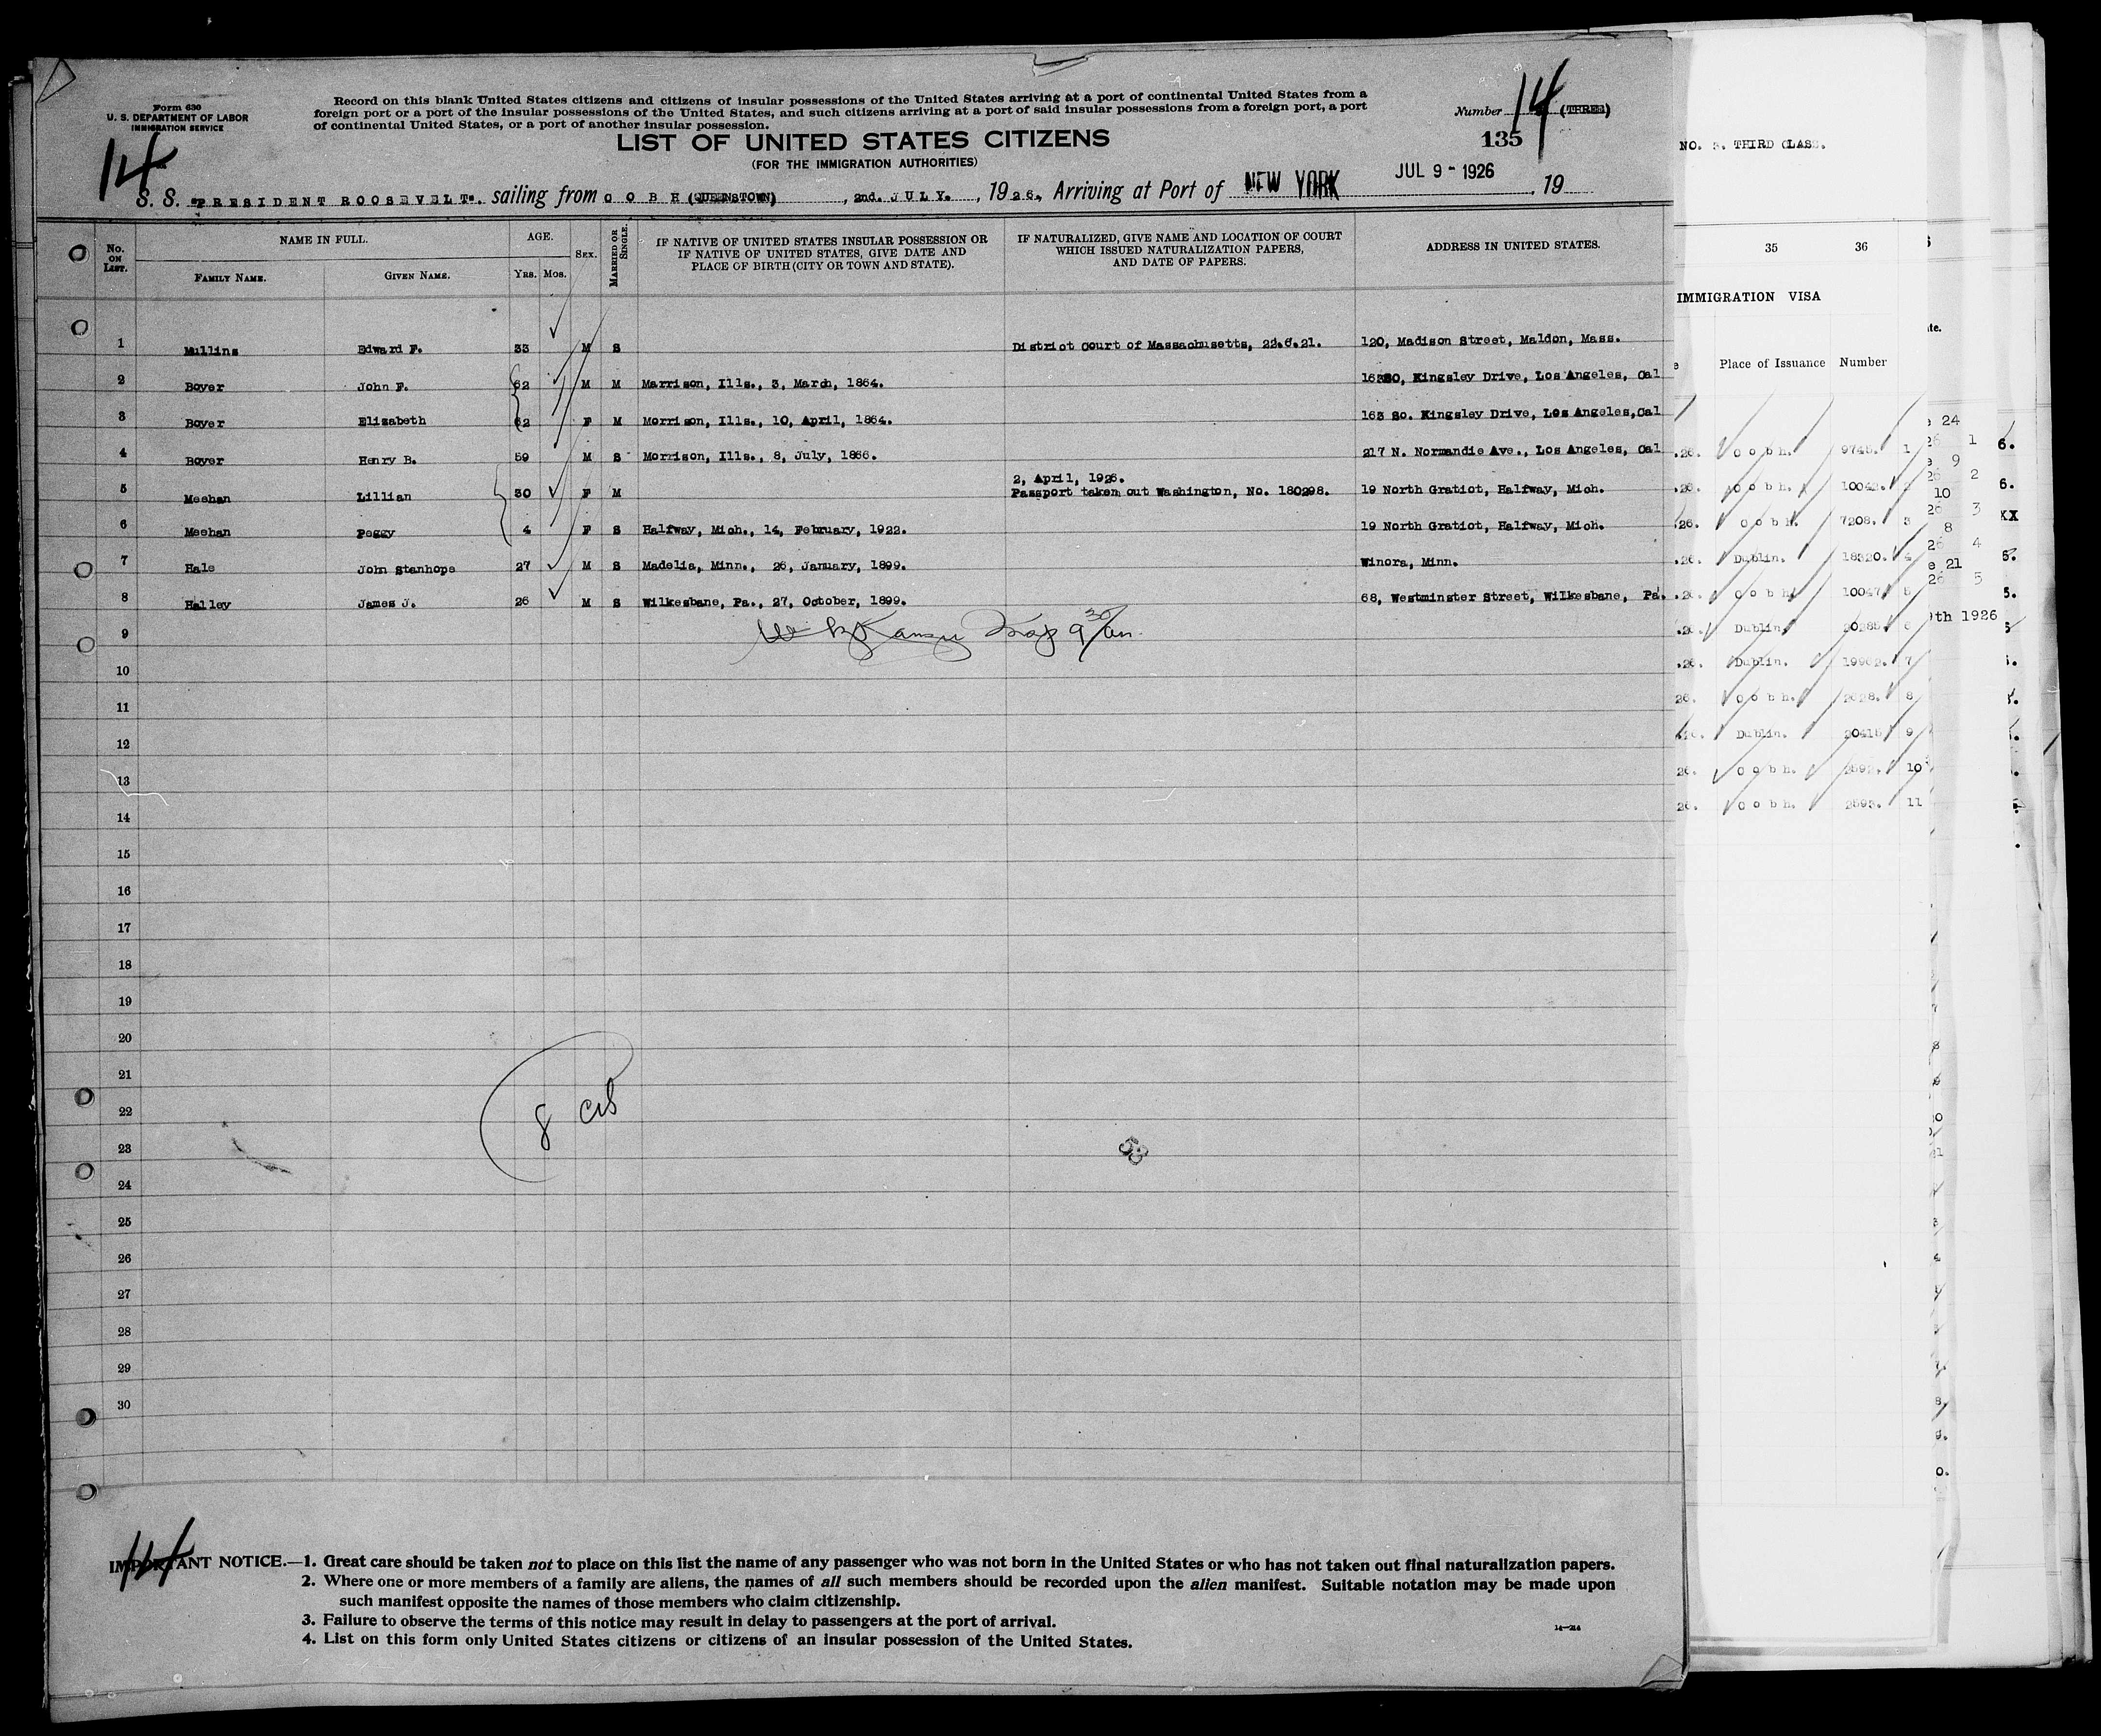 Form 630
U. S. DEPARTMENT OF LABOR
IMMIGRATION SERVICE
14
Record on this blank United States citizens and citizens of insular possessions of the United States arriving at a port of continental United States from a
foreign port or a port of the insular possessions of the United States, and such citizens arriving at a port of said insular possessions from a foreign port, a port
of continental United States, or a port of another insular possession.
Number 14 (THREE)
135
LIST OF UNITED STATES CITIZENS
(FOR THE IMMIGRATION AUTHORITIES)
S. S. "PRESIDENT ROOSEVELT". sailing from COBH (QUEENSTOWN), 2nd. JULY., 1926, Arriving at Port of NEW YORK JUL 9 - 1926, 19
No. ON LIST. NAME IN FULL. AGE. SEX. MARRIED OR SINGLE. IF NATIVE OF UNITED STATES INSULAR POSSESSION OR IF NATIVE OF UNITED STATES, GIVE DATE AND PLACE OF BIRTH (CITY OR TOWN AND STATE). IF NATURALIZED, GIVE NAME AND LOCATION OF COURT WHICH ISSUED NATURALIZATION PAPERS, AND DATE OF PAPERS. ADDRESS IN UNITED STATES.
FAMILY NAME. GIVEN NAME. YRS. MOS.
1 Mullins Edward F. 33 M S District Court of Massachusetts, 22.6.21. 120, Madison Street, Maldon, Mass.
2 Boyer John F. 62 M M Marrison, Ills., 3, March, 1864. Kingsley Drive, Los Angeles, Cal
3 Boyer Elizabeth 62 F M Morrison, Ills., 10, April, 1864. 163 So. Kingsley Drive, Los Angeles, Cal
4 Boyer Henry B. 59 M S Morrison, Ills., 8, July, 1866. 217 N. Normandie Ave., Los Angeles, Cal
2, April, 1926.
5 Meehan Lillian 30 F M Passport taken out Washington, No. 180298. 19 North Gratiot, Halfway, Mich.
6 Meehan Peggy 4 F S Halfway, Mich., 14, February, 1922. 19 North Gratiot, Halfway, Mich.
7 Hale John Stanhope 27 M S Madelia, Minn., 26, January, 1899. Winora, Minn.
8 Halley James J. 26 M S Wilkesbane, Pa., 27, October, 1899. 68, Westminster Street, Wilkesbane, Pa.
9
10
11
12
13
14
15
16
17
18
19
20
21
22
23
24
25
26
27
28
29
30
8
58
14
IMPORTANT NOTICE.—1. Great care should be taken not to place on this list the name of any passenger who was not born in the United States or who has not taken out final naturalization papers.
2. Where one or more members of a family are aliens, the names of all such members should be recorded upon the alien manifest. Suitable notation may be made upon
such manifest opposite the names of those members who claim citizenship.
3. Failure to observe the terms of this notice may result in delay to passengers at the port of arrival.
4. List on this form only United States citizens or citizens of an insular possession of the United States.
14—214
NO. 3. THIRD CLASS.
35 36
IMMIGRATION VISA
Place of Issuance Number
Cobh. 9745. 1
Cobh. 10042.
Cobh. 7208. 3
Dublin. 18320. 4
Cobh. 10047 5
Dublin. 20385 6
Dublin. 19962. 7
Cobh. 2628. 8
Dublin. 20415 9
Cobh. 2592. 10
Cobh. 2593. 11